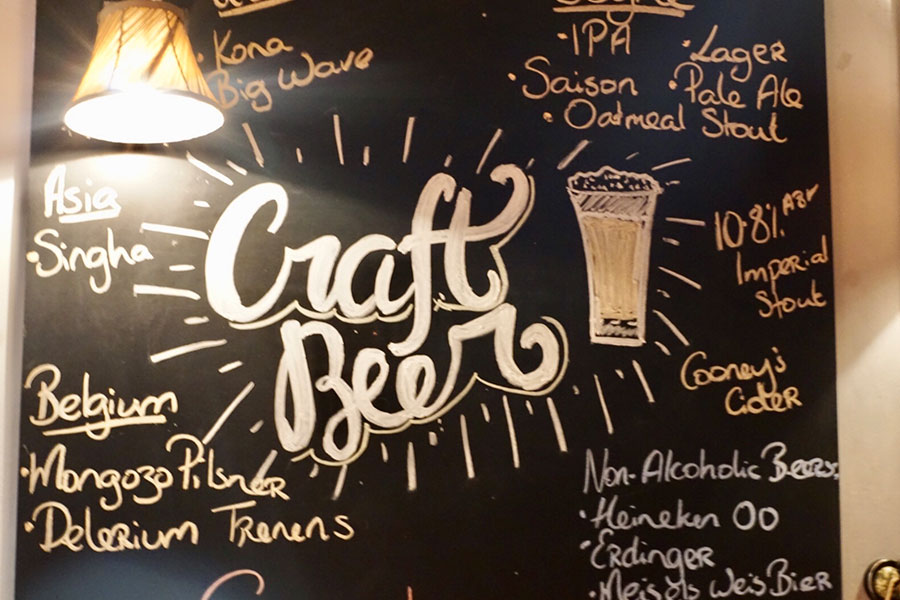 · Kona
Big Wave
· IPA
· Lager
· Saison
· Pale Ale
· Oatmeal Stout
Asia
· Singha
Craft
Beer
10.8% ABV
Imperial
Stout
Cooney's
Cider
Belgium
· Mongozo Pilsner
· Delerium Tremens
Non-Alcoholic Beers
· Heineken 00
· Erdinger
· Meisels Weis Bier